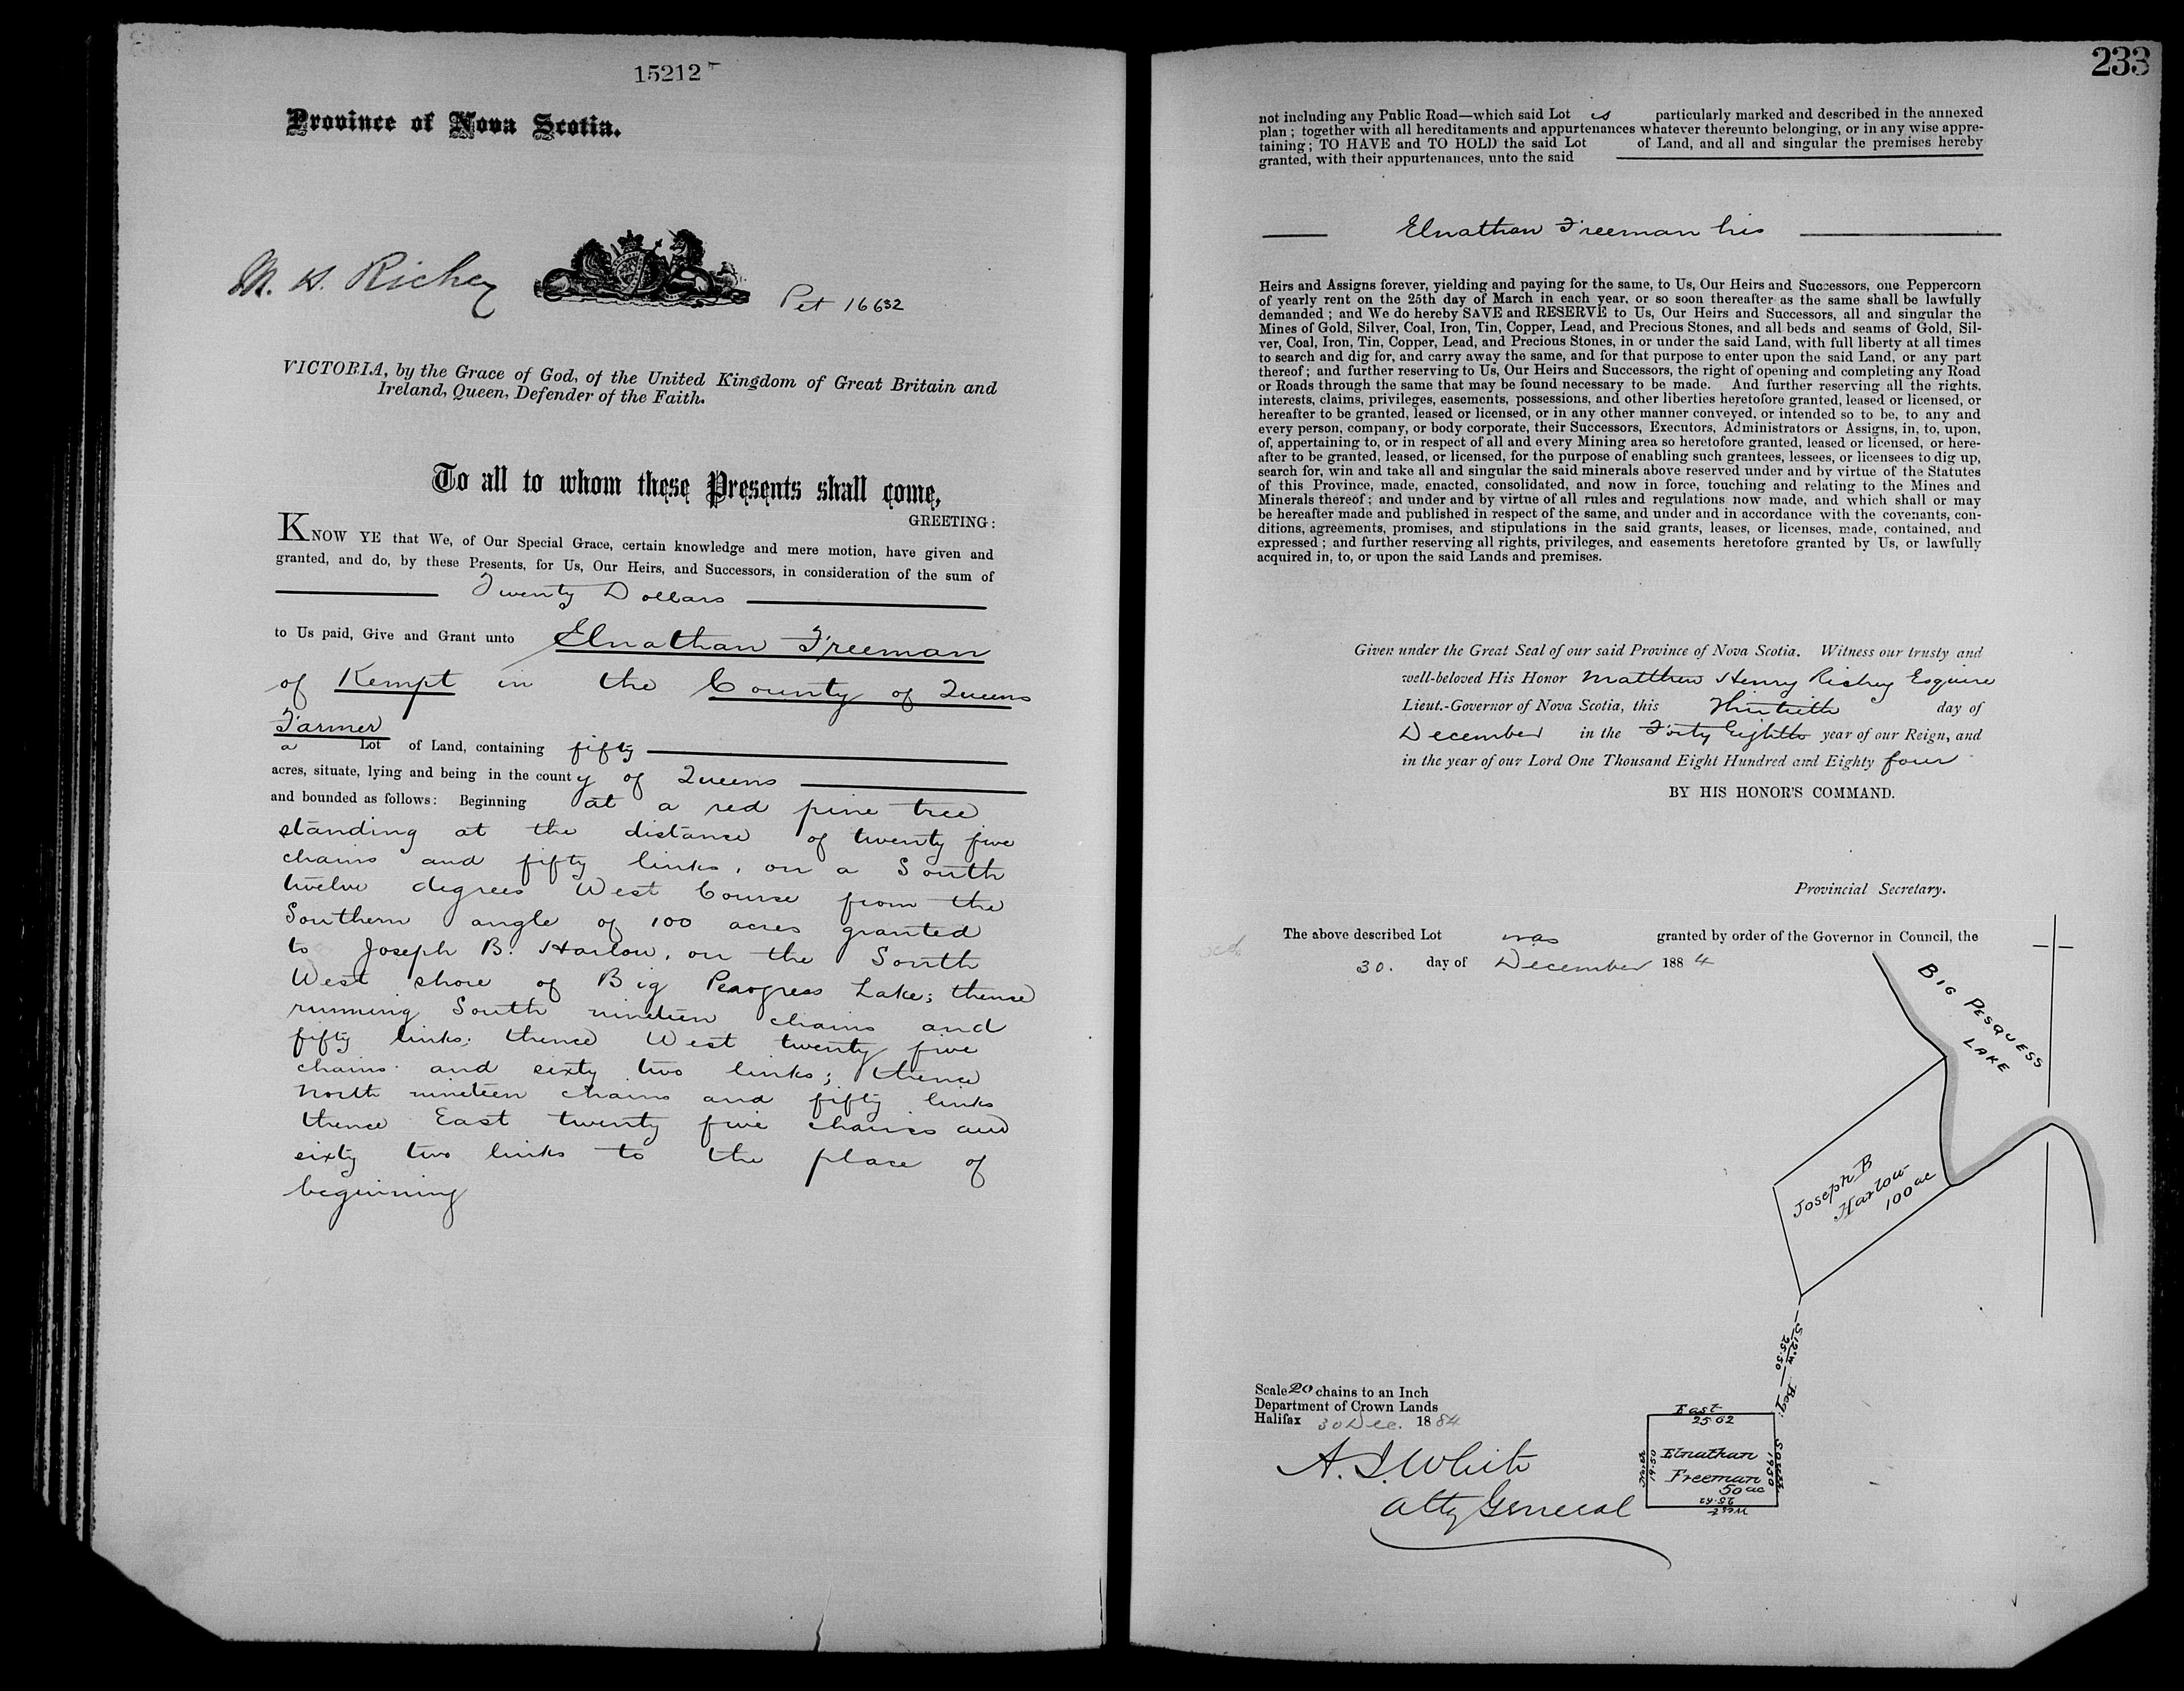 15212
Province of Nova Scotia.
M. H. Richey
Pet 16632
VICTORIA, by the Grace of God, of the United Kingdom of Great Britain and
Ireland, Queen, Defender of the Faith.
To all to whom these Presents shall come,
GREETING:
KNOW YE that We, of Our Special Grace, certain knowledge and mere motion, have given and
granted, and do, by these Presents, for Us, Our Heirs, and Successors, in consideration of the sum of
Twenty Dollars
to Us paid, Give and Grant unto Elnathan Freeman
of Kempt in the County of Queens
Farmer
a Lot of Land, containing fifty
acres, situate, lying and being in the county of Queens
and bounded as follows: Beginning at a red pine tree
standing at the distance of twenty five
chains and fifty links, on a South
twelve degrees West Course from the
Southern angle of 100 acres granted
to Joseph B. Harlow, on the South
West shore of Big Lake; thence
running South nineteen chains and
fifty links; thence West twenty five
chains and sixty two links; thence
North nineteen chains and fifty links
thence East twenty five chains and
sixty two links to the place of
beginning
233
not including any Public Road—which said Lot is particularly marked and described in the annexed
plan; together with all hereditaments and appurtenances whatever thereunto belonging, or in any wise appre-
taining; TO HAVE and TO HOLD the said Lot of Land, and all and singular the premises hereby
granted, with their appurtenances, unto the said
Elnathan Freeman his
Heirs and Assigns forever, yielding and paying for the same, to Us, Our Heirs and Successors, one Peppercorn
of yearly rent on the 25th day of March in each year, or so soon thereafter as the same shall be lawfully
demanded; and We do hereby SAVE and RESERVE to Us, Our Heirs and Successors, all and singular the
Mines of Gold, Silver, Coal, Iron, Tin, Copper, Lead, and Precious Stones, and all beds and seams of Gold, Sil-
ver, Coal, Iron, Tin, Copper, Lead, and Precious Stones, in or under the said Land, with full liberty at all times
to search and dig for, and carry away the same, and for that purpose to enter upon the said Land, or any part
thereof; and further reserving to Us, Our Heirs and Successors, the right of opening and completing any Road
or Roads through the same that may be found necessary to be made. And further reserving all the rights,
interests, claims, privileges, easements, possessions, and other liberties heretofore granted, leased or licensed, or
hereafter to be granted, leased or licensed, or in any other manner conveyed, or intended so to be, to any and
every person, company, or body corporate, their Successors, Executors, Administrators or Assigns, in, to, upon,
of, appertaining to, or in respect of all and every Mining area so heretofore granted, leased or licensed, or here-
after to be granted, leased, or licensed, for the purpose of enabling such grantees, lessees, or licensees to dig up,
search for, win and take all and singular the said minerals above reserved under and by virtue of the Statutes
of this Province, made, enacted, consolidated, and now in force, touching and relating to the Mines and
Minerals thereof; and under and by virtue of all rules and regulations now made, and which shall or may
be hereafter made and published in respect of the same, and under and in accordance with the covenants, con-
ditions, agreements, promises, and stipulations in the said grants, leases, or licenses, made, contained, and
expressed; and further reserving all rights, privileges, and easements heretofore granted by Us, or lawfully
acquired in, to, or upon the said Lands and premises.
Given under the Great Seal of our said Province of Nova Scotia. Witness our trusty and
well-beloved His Honor Matthew Henry Richey Esquire
Lieut.-Governor of Nova Scotia, this Thirtieth day of
December in the Forty Eighth year of our Reign, and
in the year of our Lord One Thousand Eight Hundred and Eighty four
BY HIS HONOR'S COMMAND.
Provincial Secretary.
The above described Lot was granted by order of the Governor in Council, the
30. day of December 1884
BIG PESQUESS
LAKE
Joseph B
Harlow
100 ac
S 12° W
25.50
Beg:
Scale 20 chains to an Inch
Department of Crown Lands
Halifax 30 Dec. 1884
A. J. White
Atty General
East
25 62
North
19.50
Elnathan
Freeman
50 ac
South
19.50
25.62
West